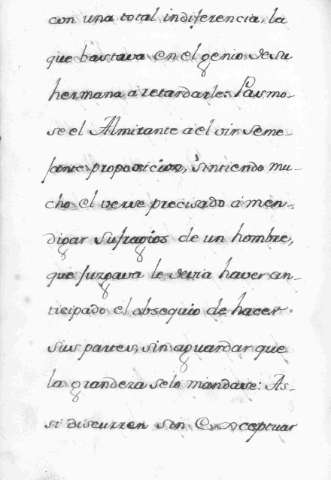 con una total indiferencia, la
que bastava en el genio de su
hermana a retardarle. Pasmo-
se el Almirante a el oir seme-
jante proposicion, sintiendo mu-
cho el verse precisado a men-
digar sufragios de un hombre,
que juzgava le devia haver an-
ticipado el obsequio de hacer
sus partes, sin aguardar que
la grandeza se lo mandase: As-
si discurren sin exceptuar